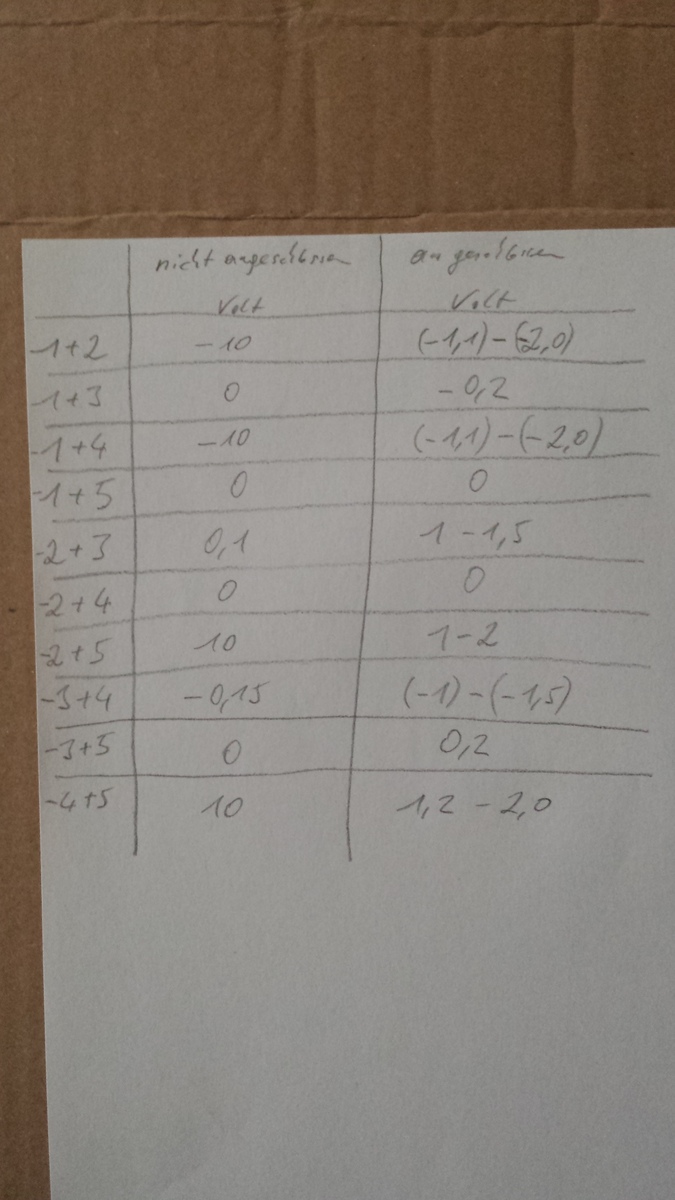 nicht angeschlossen angeschlossen
Volt Volt
-1+2 -10 (-1,1)-(-2,0)
-1+3 0 -0,2
-1+4 -10 (-1,1)-(-2,0)
-1+5 0 0
-2+3 0,1 1-1,5
-2+4 0 0
-2+5 10 1-2
-3+4 -0,15 (-1)-(-1,5)
-3+5 0 0,2
-4+5 10 1,2-2,0